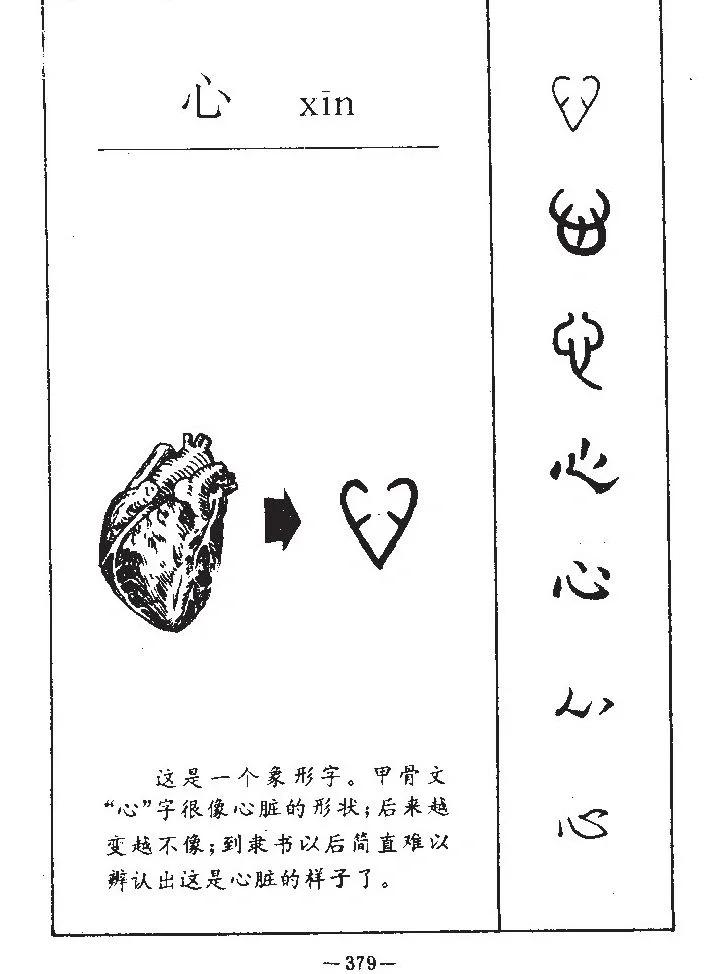 心 xīn
这是一个象形字。甲骨文
“心”字很像心脏的形状；后来越
变越不像；到隶书以后简直难以
辨认出这是心脏的样子了。
心
心
心
心
—379—